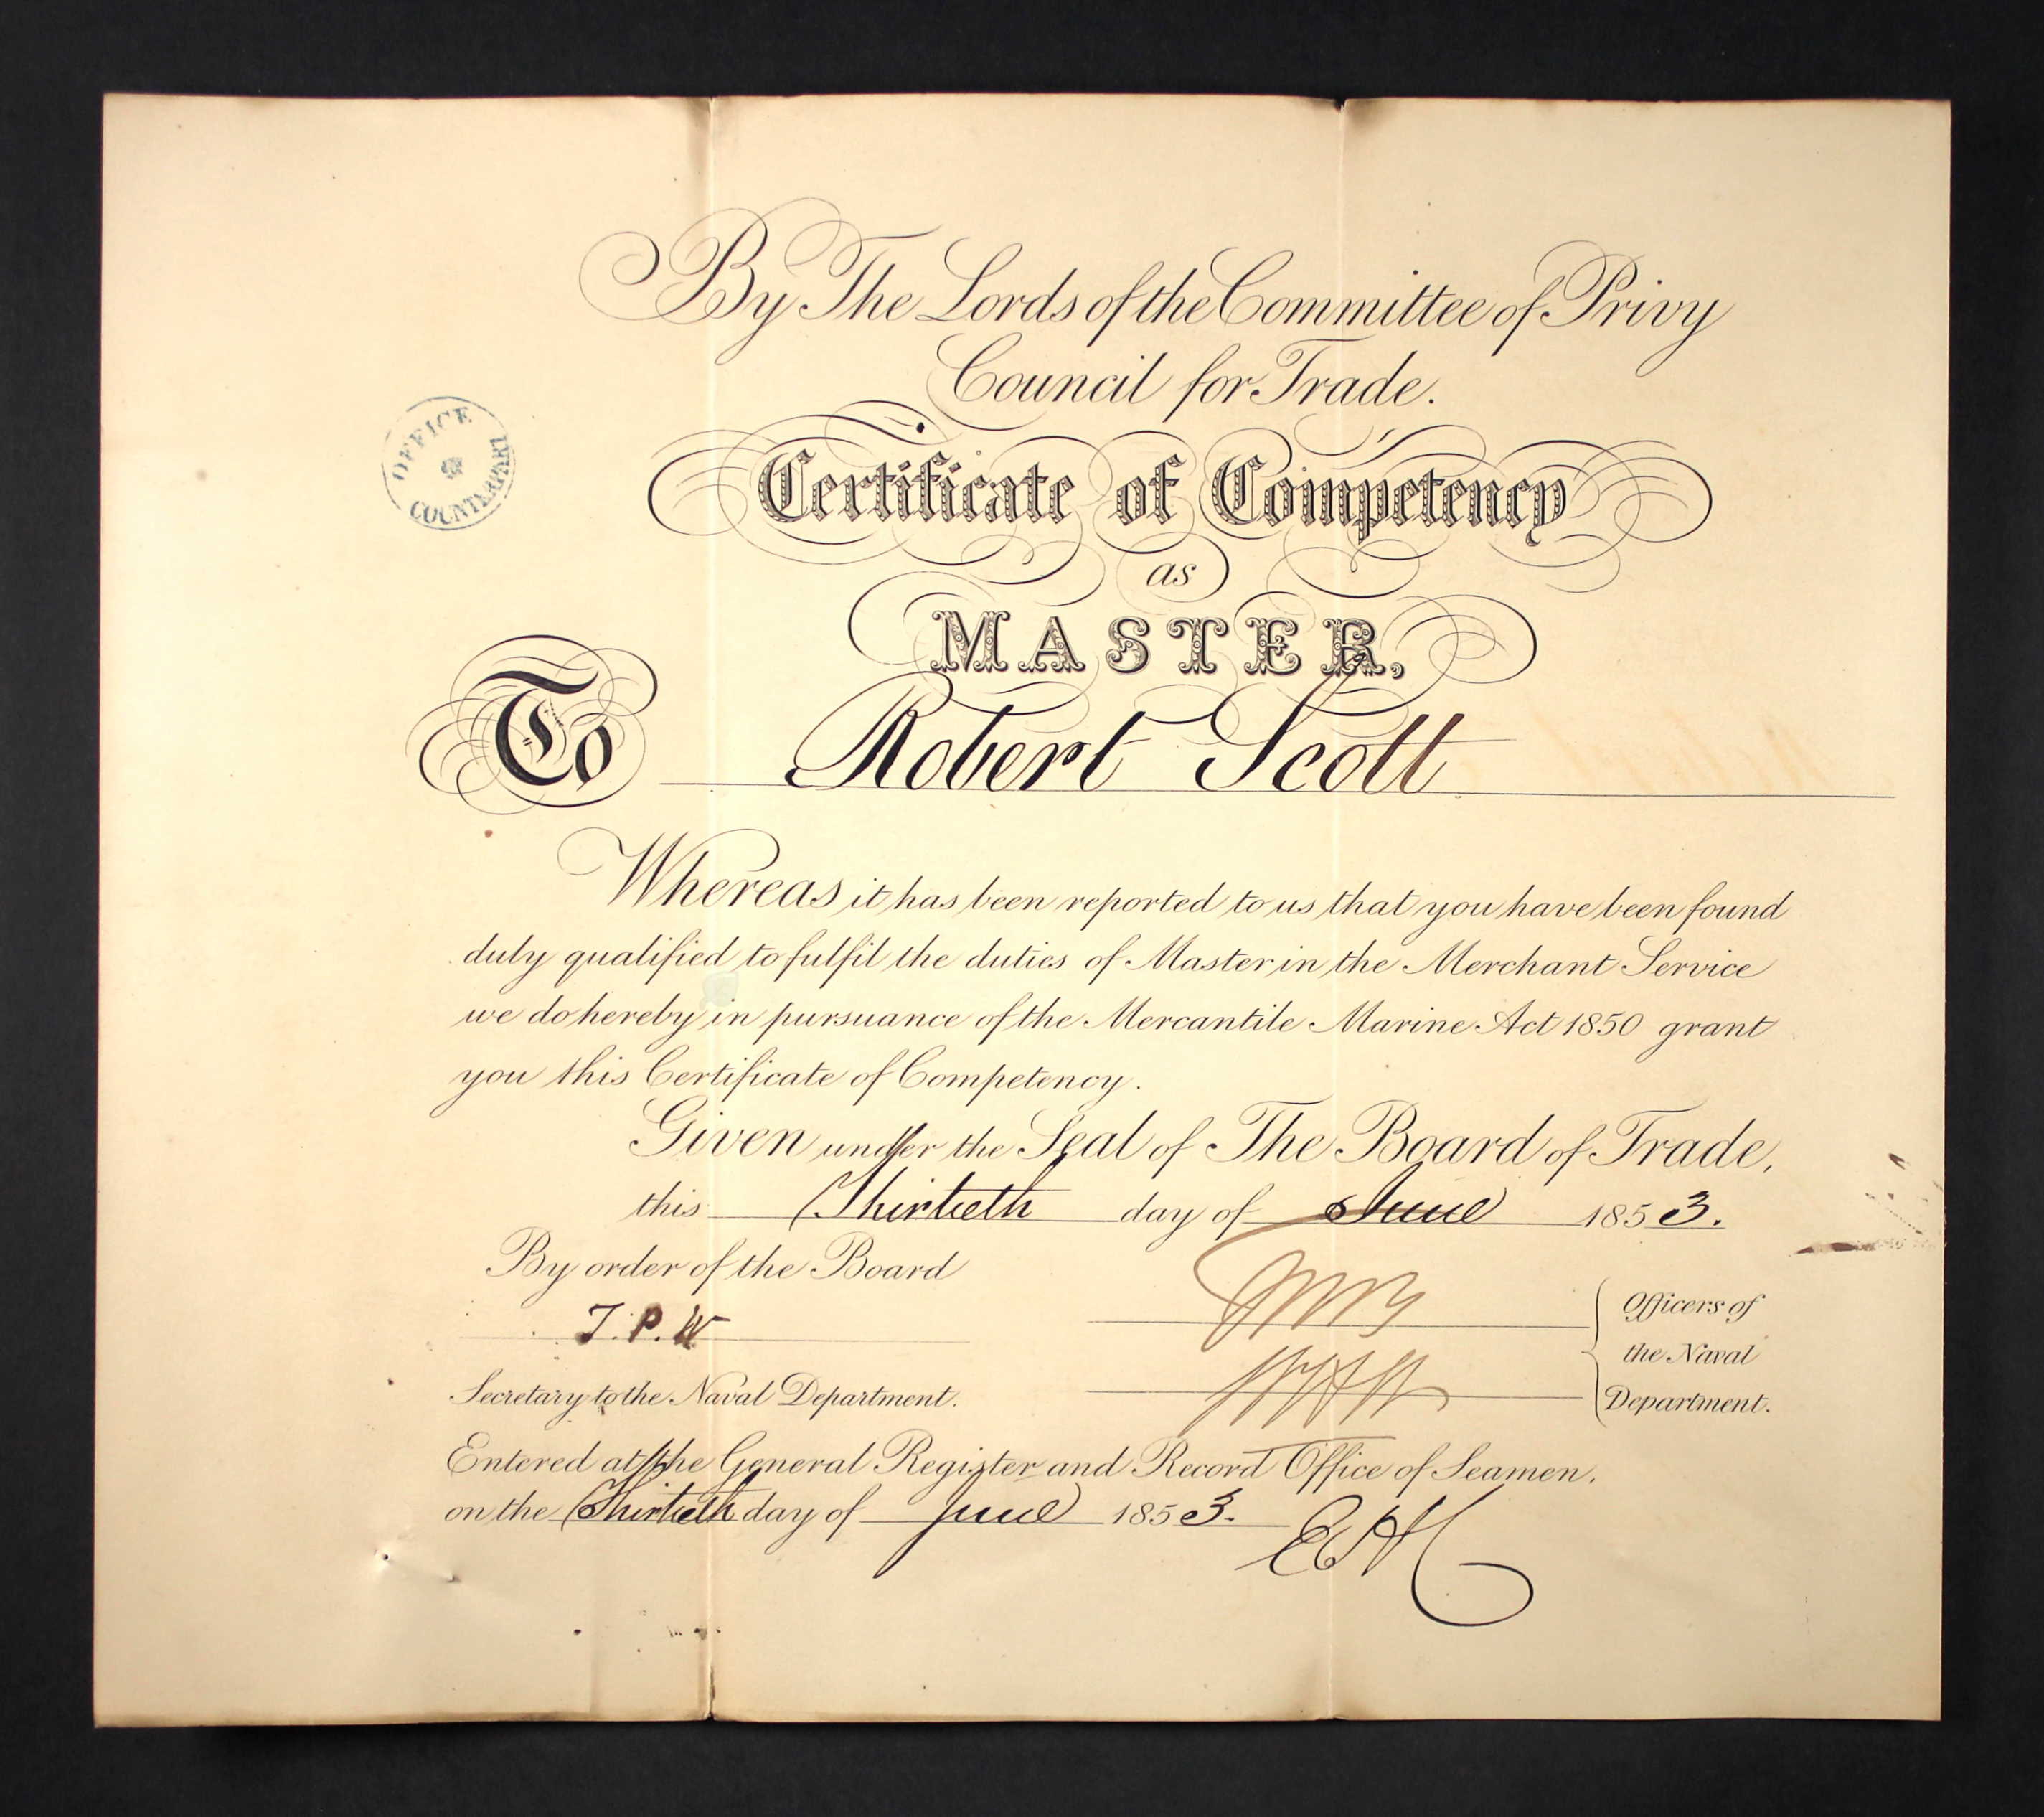 By The Lords of the Committee of Privy
Council for Trade.
OFFICE
COUNTERPART
Certificate of Competency
as
MASTER,
To Robert Scott
Whereas it has been reported to us that you have been found
duly qualified to fulfil the duties of Master in the Merchant Service
we do hereby in pursuance of the Mercantile Marine Act 1850 grant
you this Certificate of Competency.
Given under the Seal of The Board of Trade,
this Thirtieth day of June 1853.
By order of the Board
T.P.W
Officers of
the Naval
Department.
Secretary to the Naval Department.
Entered at the General Register and Record Office of Seamen,
on the Thirtieth day of June 1853.